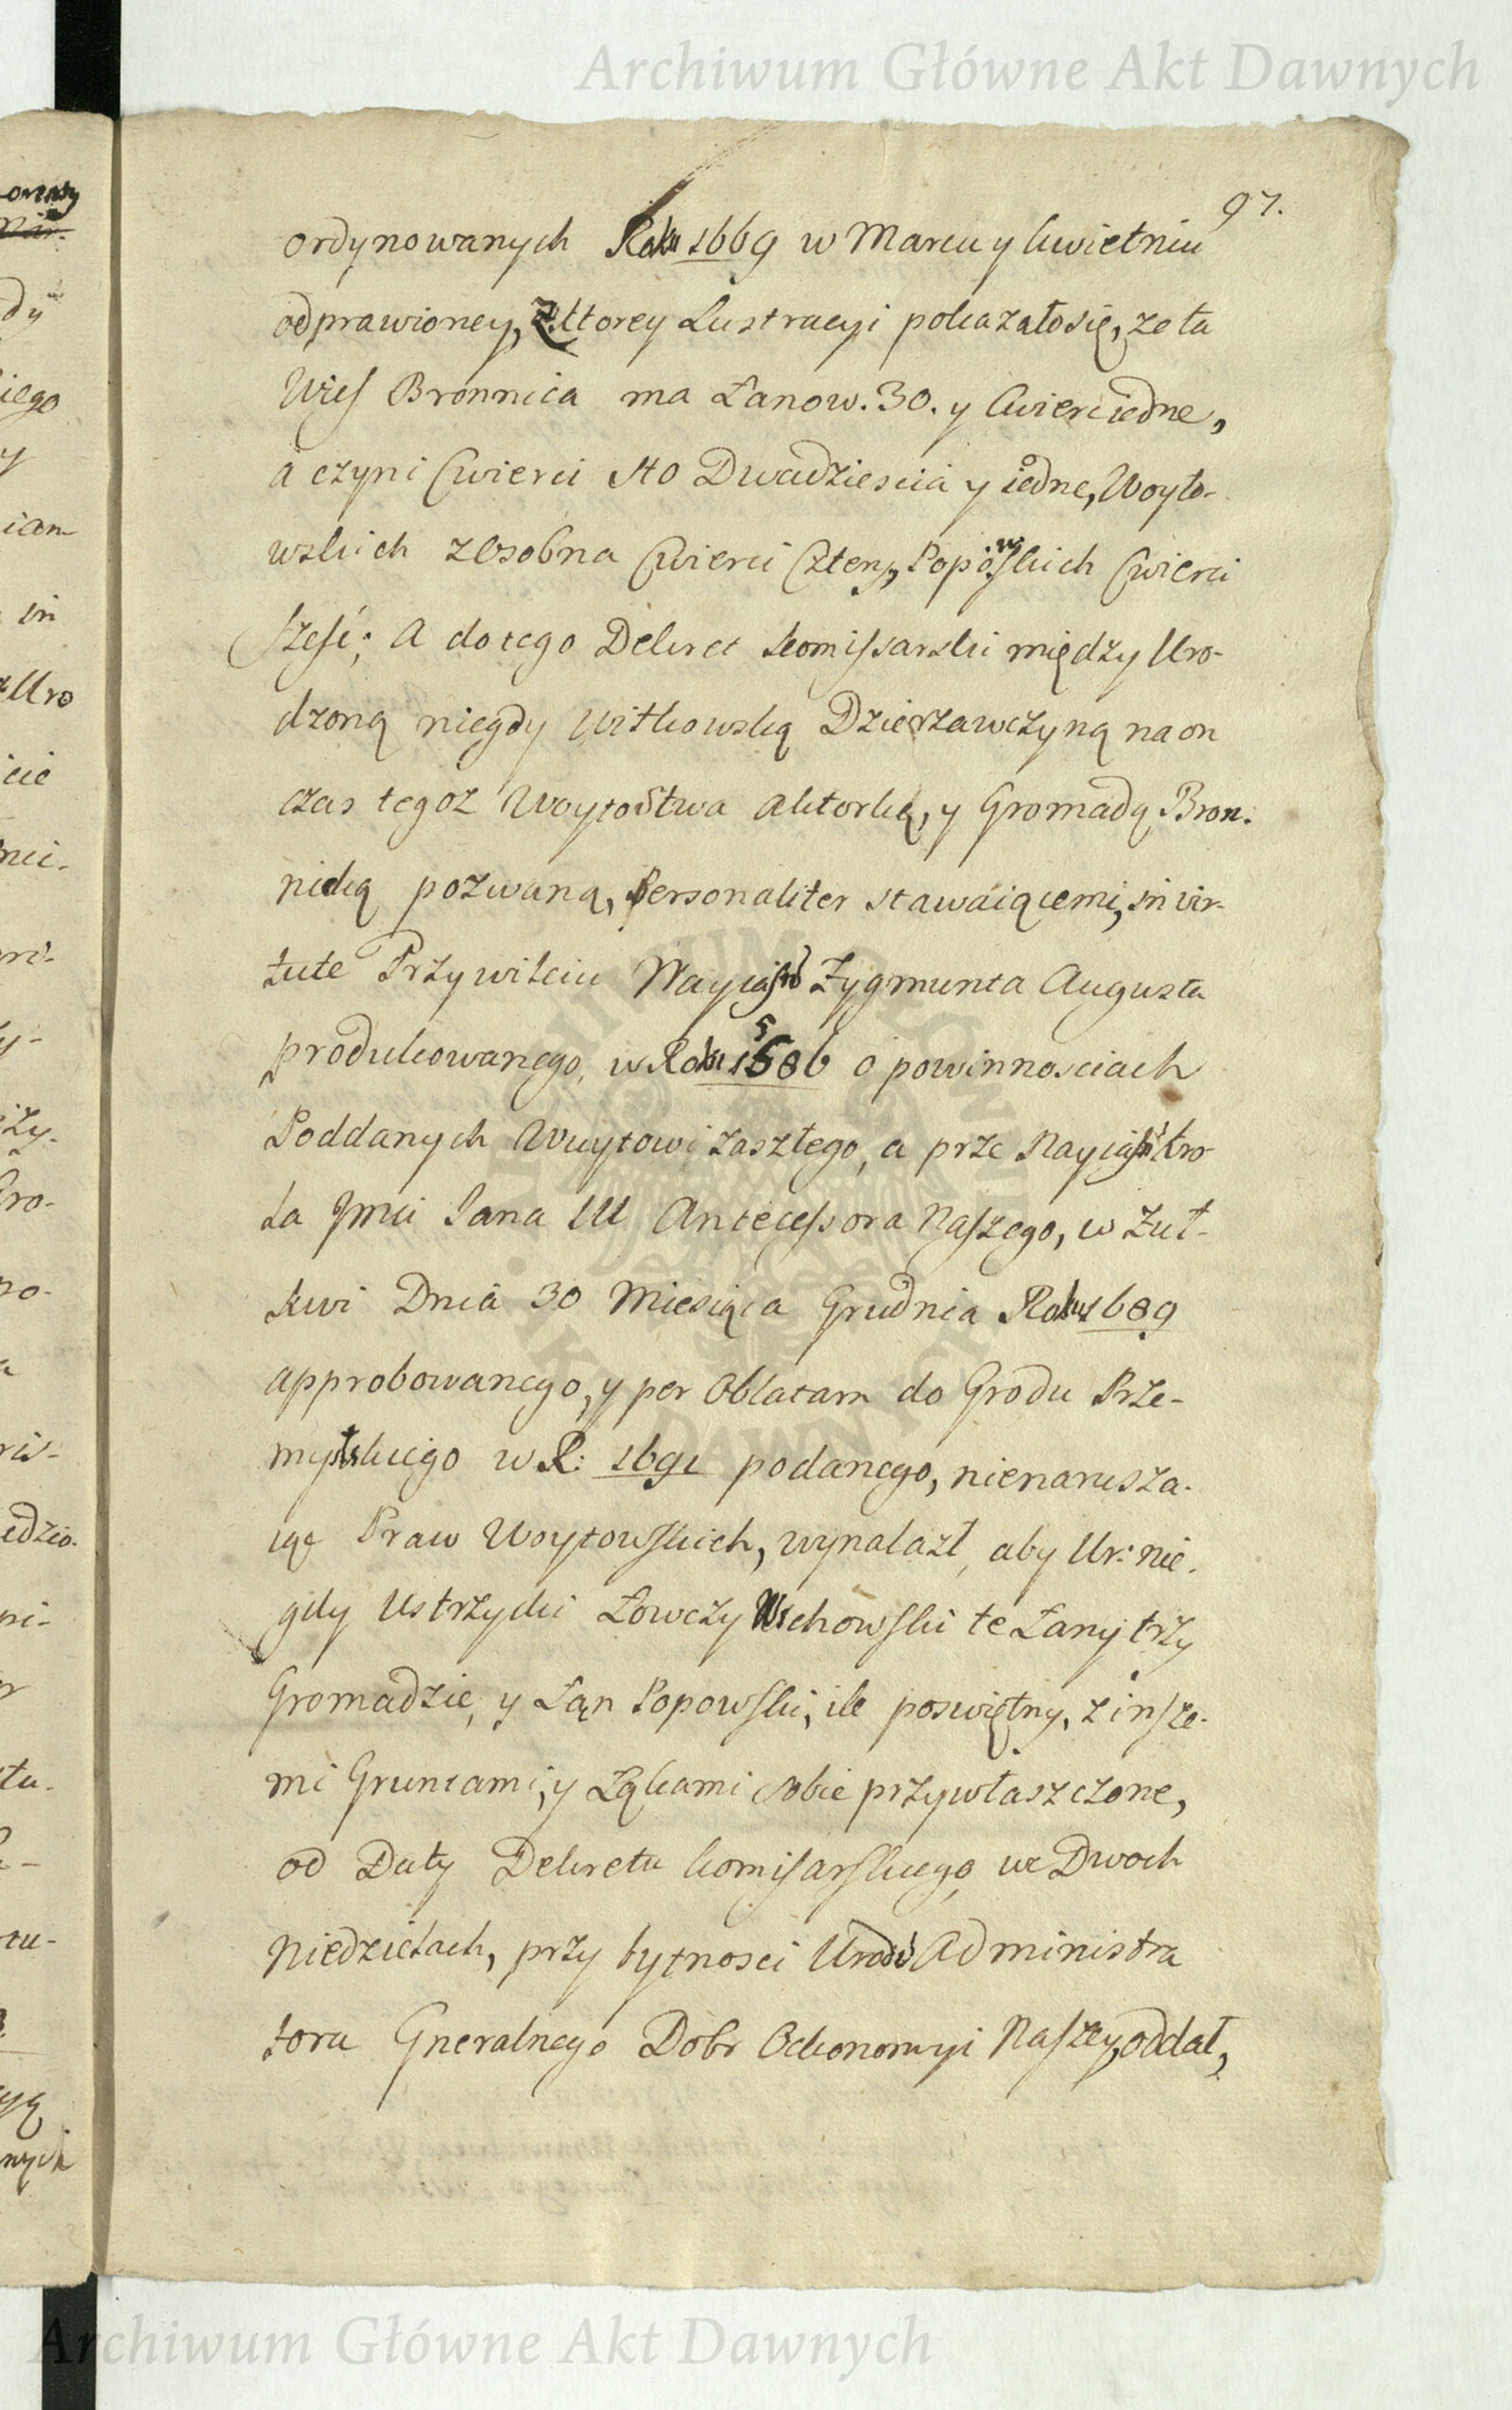 Archiwum Główne Akt Dawnych
97.
ordynowanych Roku 1669 w Marcu y kwietniu
odprawioney, z ktorey Lustracyi pokazało się, ze ta
Wieś Bronnica ma Łanow. 30. y Cwierc iedne,
a czyni Cwierci sto Dwadziescia y iedne, Woyto-
wskich z osobna Cwierci Cztery, Popowskich Cwierci
Szesć; A do tego Dekret Komissarski między Uro-
dzoną niegdy Witkowską Dzierzawczyną na on
czas tegoz Woytostwa Aktorką, y Gromadą Bron.
nicką pozwaną, Personaliter stawaiącemi, in vir-
tute Przywileiu Nayiaśń Zygmunta Augusta
produkowanego, w Roku 1586 o powinnosciach
Poddanych Wuytowi zaszłego, a prze Nayiaśń Kro
la Jmci Jana III Antecessora Naszego, w Zuł-
kwi Dnia 30 Miesiąca Grudnia Roku 1689
approbowanego, y per Oblatam do Grodu Prze-
mysłskiego w R: 1691 podanego, nienarusza-
iąc Praw Woytowskich, wynalazł, aby Ur: nie-
gdy Ustrzycki Łowczy Wschowski te Łany trzy
Gromadzie, y Łan Popowski, ile poswiętny, z insze-
mi Gruntami, y Łąkami sobie przywłaszczone,
od Daty Dekretu komisarskiego we Dwoch
Niedzielach, przy bytnosci Urodź Administra
tora Gneralnego Dobr Oekonomyi Naszey, oddał,
Archiwum Główne Akt Dawnych